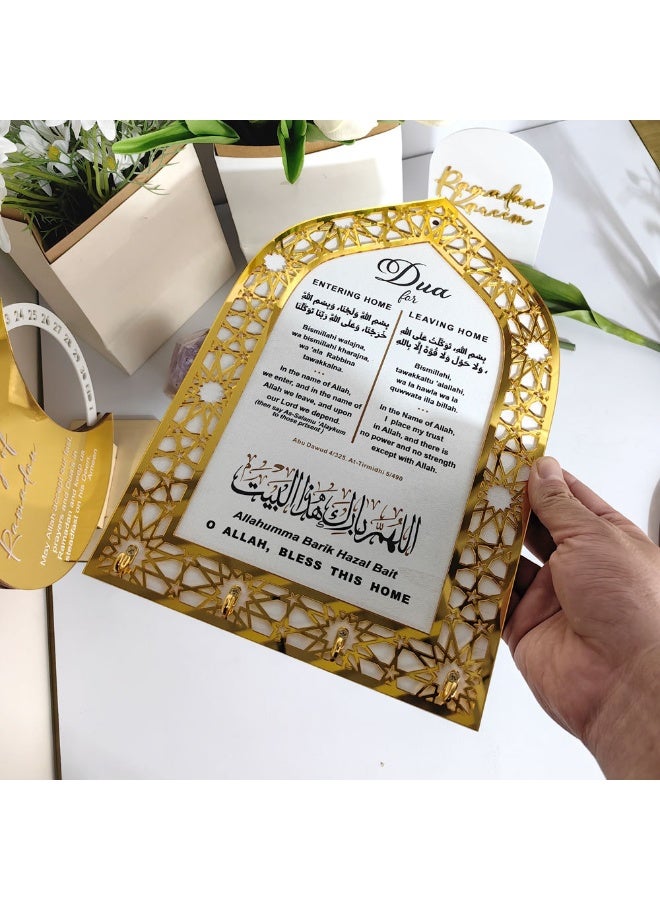 Dua
for
ENTERING HOME
بِسْمِ اللهِ وَلَجْنَا، وَبِسْمِ اللهِ
خَرَجْنَا، وَعَلَى اللهِ رَبِّنَا تَوَكَّلْنَا
Bismillahi walajna,
wa bismillahi kharajna,
wa 'ala Rabbina
tawakkalna.
In the name of Allah,
we enter, and in the name of
Allah we leave, and upon
our Lord we depend.
(then say As-Salamu 'Alaykum
to those prisent)
LEAVING HOME
بِسْمِ اللهِ، تَوَكَّلْتُ عَلَى اللهِ
، وَلَا حَوْلَ وَلَا قُوَّةَ إِلَّا بِاللهِ
Bismillahi,
tawakkaltu 'alallahi,
wa la hawla wa la
quwwata illa billah.
In the Name of Allah,
I place my trust
in Allah, and there is
no power and no strength
except with Allah.
Abu Dawud 4/325, At-Tirmidhi 5/490
اللهُمَّ بَارِكْ هٰذَا الْبَيْتَ
Allahumma Barik Hazal Bait
O ALLAH, BLESS THIS HOME
Ramadan
Kareem
24 25 26 27 28
Ramadan
May Allah accept our fast,
prayers and Duas in
Ramadan and keep us
steadfast on his Deen.
Ameen